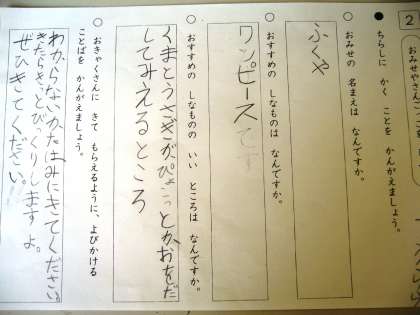 2
おみせやさん
● ちらしに かく ことを かんがえましょう。
○ おみせの 名まえは なんですか。
ふくや
○ おすすめの しなものは なんですか。
ワンピースです
○ おすすめの しなものの いい ところは なんですか。
くまとうさぎが、ぴょこっとか、おもだ
してみえるところ
○ おきゃくさんに きて もらえるように、よびかける
ことばを かんがえましょう。
わからないかたはみにきてください。
きたらきっとびっくりしますよ。
ぜひきてください!!